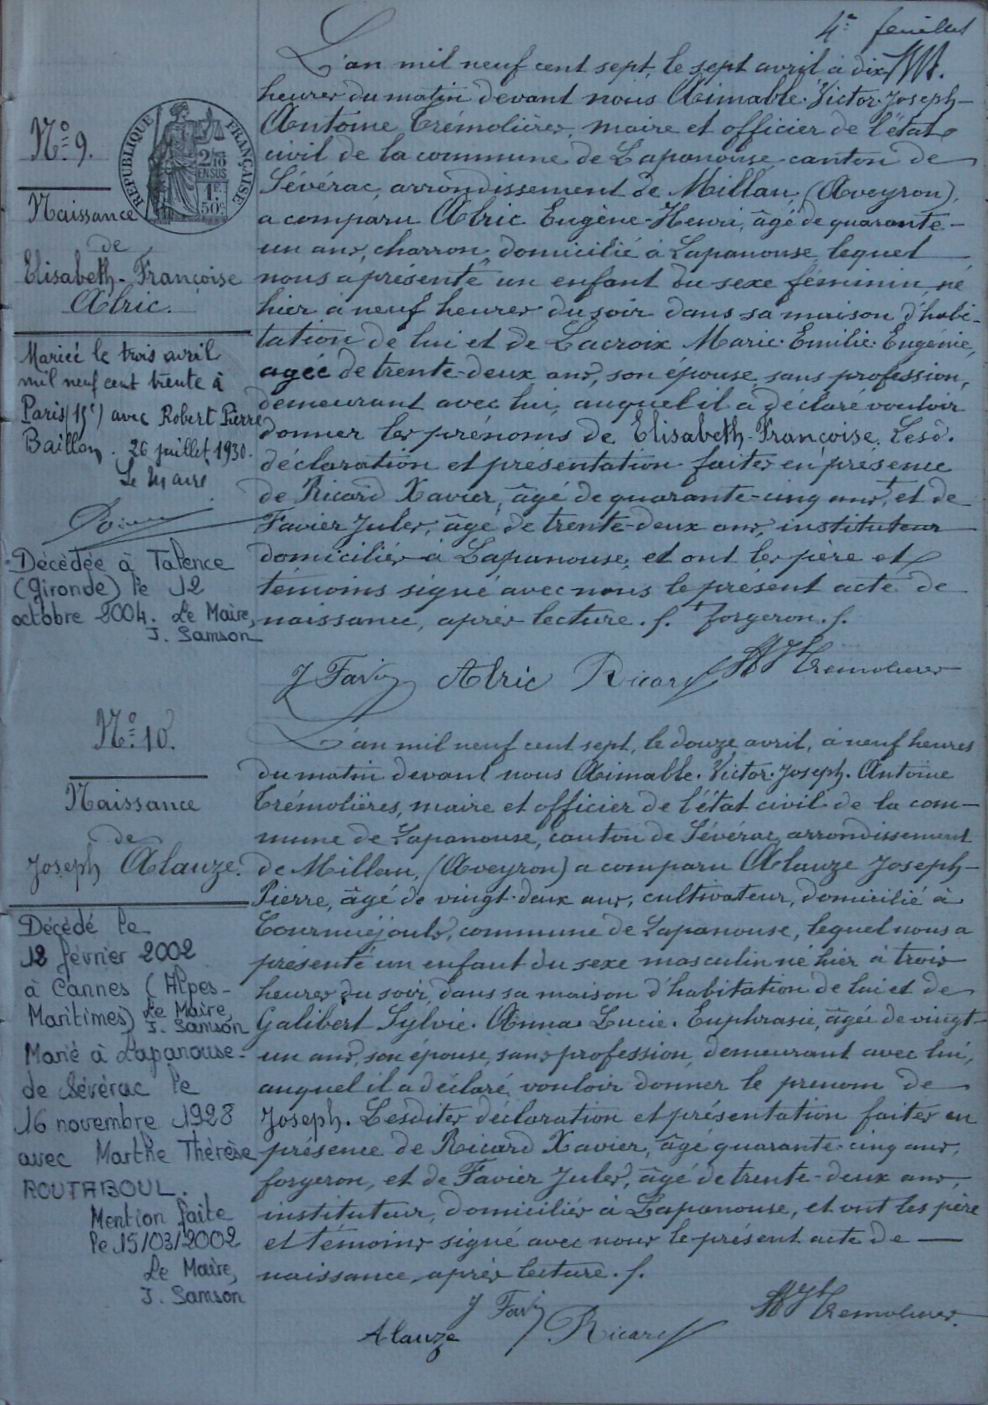 4e feuillet
N° 9.
Naissance
de
Elisabeth-Françoise
Alric.
RÉPUBLIQUE FRANÇAISE
2/10 EN SUS
1F. 50c.
Mariée le trois avril
mil neuf cent trente à
Paris (15e) avec Robert Pierre
Baillon. 26 juillet 1930.
Le Maire
Décédée à Talence
(Gironde) le 12
octobre 2004. Le Maire,
J. Samson
L'an mil neuf cent sept, le sept avril à dix
heures du matin devant nous Aimable-Victor-Joseph-
Antoine Trémolières, maire et officier de l'état
civil de la commune de Lapanouse canton de
Sévérac, arrondissement de Millau, (Aveyron),
a comparu Alric Eugène-Henri, âgé de quarante-
un ans, charron, domicilié à Lapanouse, lequel
nous a présenté un enfant du sexe féminin, né
hier à neuf heures du soir dans sa maison d'habi-
tation de lui et de Lacroix Marie-Emilie-Eugénie,
agée de trente-deux ans, son épouse, sans profession,
demeurant avec lui, auquel il a déclaré vouloir
donner les prénoms de Elisabeth-Françoise. Lesd.
déclaration et présentation faites en présence
de Ricard Xavier, âgé de quarante-cinq ans, + et de
Favier Jules, âgé de trente-deux ans, instituteur
domiciliés à Lapanouse, et ont les père et
témoins signé avec nous le présent acte de
naissance, après lecture. /. + forgeron. /.
J Favier Alric Ricard Trémolières
N° 10.
Naissance
de
Joseph Alauze.
Décédé le
12 février 2002
à Cannes (Alpes-
Maritimes) Le Maire,
J. Samson
Marié à Lapanouse-
de Sévérac le
16 novembre 1928
avec Marthe Thérèse
ROUTABOUL.
Mention faite
le 15/03/2002
Le Maire,
J. Samson
L'an mil neuf cent sept, le douze avril, à neuf heures
du matin devant nous Aimable-Victor-Joseph-Antoine
Trémolières, maire et officier de l'état civil de la com-
mune de Lapanouse, canton de Sévérac, arrondissement
de Millau, (Aveyron) a comparu Alauze Joseph-
Pierre, âgé de vingt-deux ans, cultivateur, domicilié à
Tournuéjouls, commune de Lapanouse, lequel nous a
présenté un enfant du sexe masculin né hier à trois
heures du soir, dans sa maison d'habitation de lui et de
Galibert Sylvie-Anna-Lucie-Euphrasie, âgée de vingt-
un ans, son épouse, sans profession, demeurant avec lui,
auquel il a déclaré vouloir donner le prenom de
Joseph. Lesdites déclaration et présentation faites en
présence de Ricard Xavier, âgé quarante-cinq ans,
forgeron, et de Favier Jules, âgé de trente-deux ans,
instituteur, domiciliés à Lapanouse, et ont les père
et témoins signé avec nous le présent acte de
naissance, après lecture. /.
J Favier
Alauze Ricard Trémolières